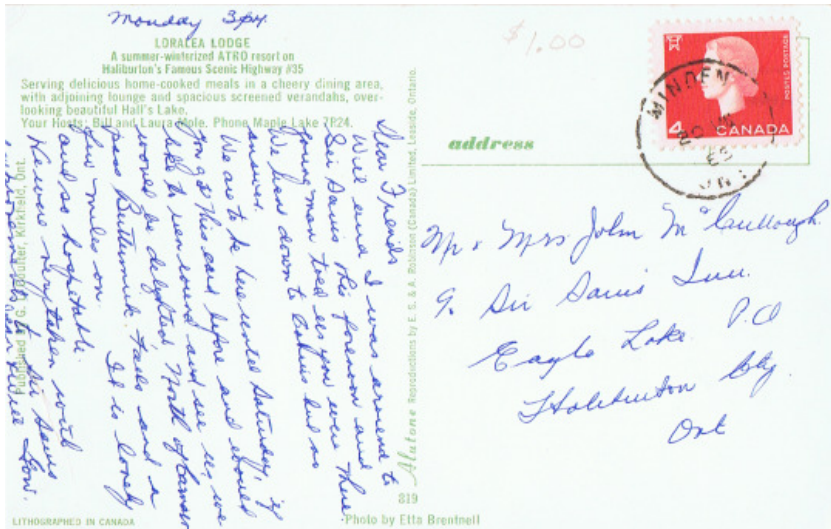 Monday 3 P.M.
LORALEA LODGE
A summer-winterized ATRO resort on
Haliburton's Famous Scenic Highway #35
Serving delicious home-cooked meals in a cheery dining area,
with adjoining lounge and spacious screened verandahs, over-
looking beautiful Hall's Lake.
Your Hosts: Bill and Laura Mole. Phone Maple Lake 7R24.
Dear Friends
Will and I was around to
Sir Sams this forenoon and
young man told us you were there
We been down to but no
answer.
We are to be here until Saturday, if
you get this card before and would
like to run round and see us, we
would be delighted. North of
pass Buttermilk Falls and a
few miles on. It is lovely
and so hospitable.
Have very taken with
to Sir Sams
Published by G. L. Boulter, Kirkfield, Ont.
LITHOGRAPHED IN CANADA
Alutone Reproductions by E. S. & A. Robinson (Canada) Limited, Leaside, Ontario.
819
-Photo by Etta Brentnell
$1.00
address
POSTES POSTAGE
4 CANADA
MINDEN
ONT
Mr & Mrs John McCullough
Sir Sams Inn.
Eagle Lake P.O
Haliburton Cty.
Ont